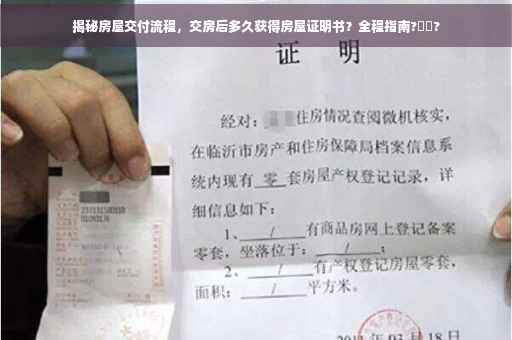 揭秘房屋交付流程，交房后多久获得房屋证明书？全程指南?▯▯?
证 明
经对：住房情况查阅微机核实，
在临沂市房产和住房保障局档案信息系
统内现有 零 套房屋产权登记记录，详
细信息如下：
1、 / 有商品房网上登记备案
零套，坐落位于： / ；
2、 / 有产权登记房屋零套，
面积： / 平方米。
03月18日